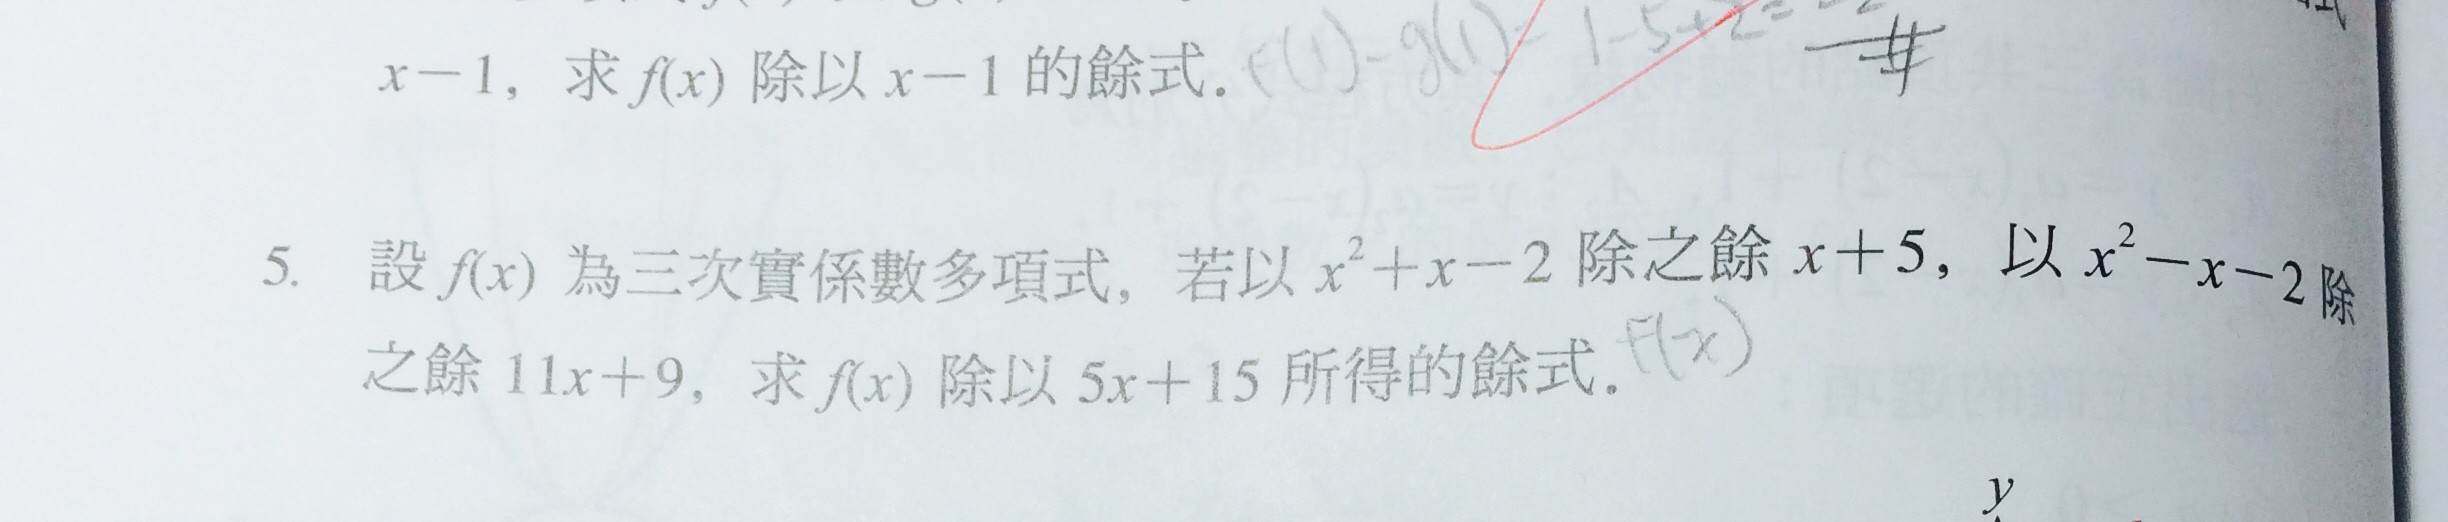 x－1，求 f(x) 除以 x－1 的餘式． f(1)－g(1)＝ 1－5+2＝－2
5. 設 f(x) 為三次實係數多項式，若以 x²＋x－2 除之餘 x＋5，以 x²－x－2 除
之餘 11x＋9，求 f(x) 除以 5x＋15 所得的餘式． f(-x)
y